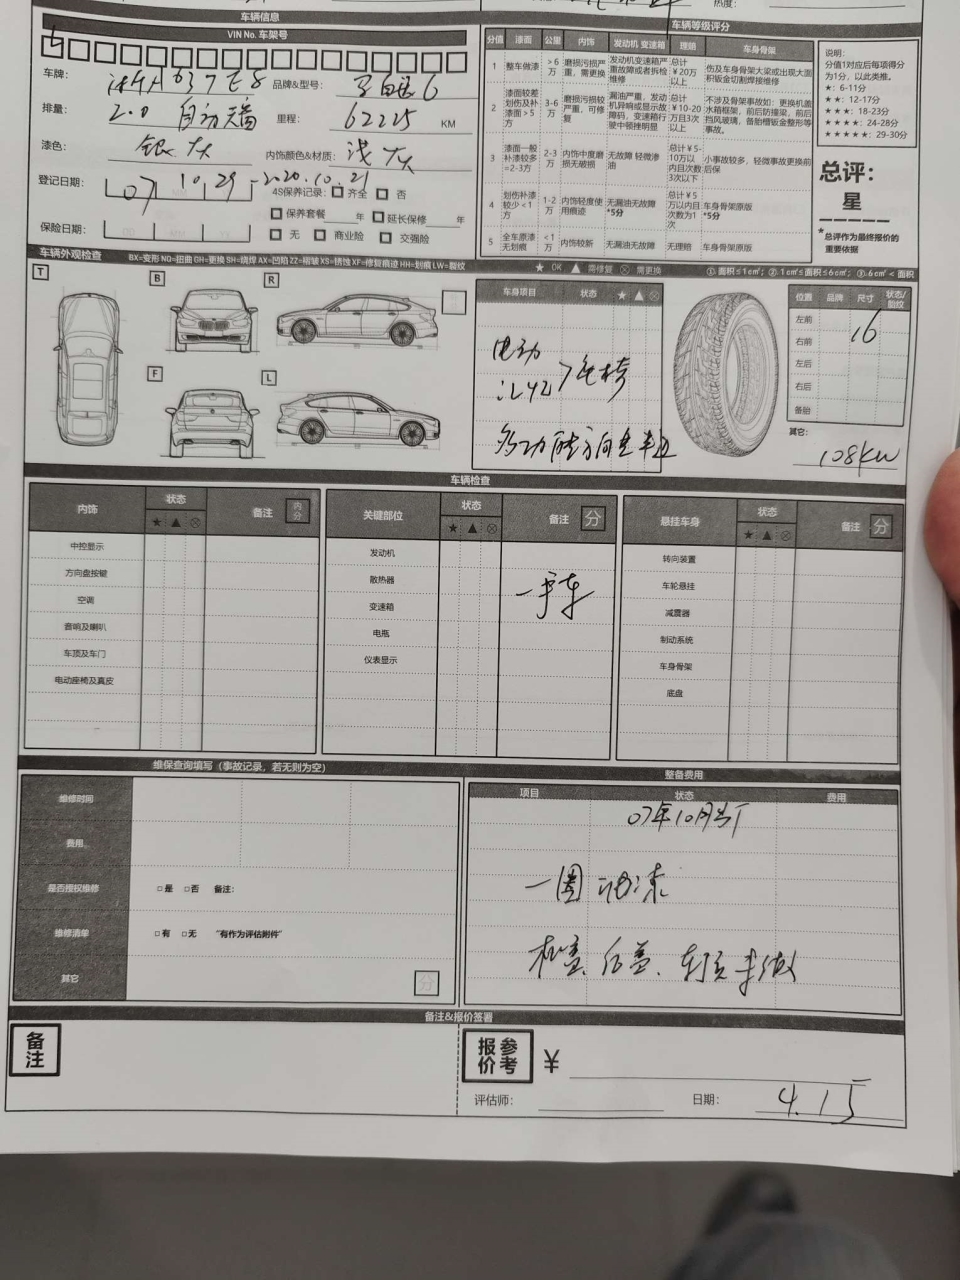 热度:
车辆信息
VIN No. 车架号
车牌: 品牌&型号:
排量: 2.0 自动 里程: 62225 KM
漆色: 银灰 内饰颜色&材质: 浅灰
登记日期: 07 10 29 -2020.10.21 4S保养记录: 齐全 否
保养套餐 年 延长保修 年
保险日期: 无 商业险 交强险
车辆等级评分
分值 漆面 公里 内饰 发动机 变速箱 理赔 车身骨架
1 整车做漆 >6万 磨损污损严重，需更换 发动机变速箱严重故障或者拆检维修 总计¥20万以上 伤及车身骨架大梁或出现大面积钣金切割焊接维修
2 漆面较差划伤及补漆面>5方 3-6万 磨损污损较严重，可修复 漏油严重，发动机异响或显示故障码，变速箱行驶中顿挫明显 总计¥10-20万且3次以上 不涉及骨架事故如：更换机盖水箱框架，前后防撞梁，前后挡风玻璃，备胎槽钣金整形等事故。
3 漆面一般补漆较多=2-3方 2-3万 内饰中度磨损无破损 无故障 轻微渗油 总计¥5-10万以内且次数3次以下 小事故较多，轻微事故更换前后保
4 划伤补漆较少<1方 1-2万 内饰轻度使用痕迹 无漏油无故障 *5分 总计¥5万以内且次数为1次 车身骨架原版 *5分
5 全车原漆无划痕 <1万 内饰较新 无漏油无故障 无理赔 车身骨架原版
说明:
分值1对应后每项得分为1分，以此类推。
★: 6-11分
★★: 12-17分
★★★: 18-23分
★★★★: 24-28分
★★★★★: 29-30分
总评:
星
*总评作为最终报价的重要依据
车辆外观检查 BX=变形 NQ=扭曲 GH=更换 SH=烧焊 AX=凹陷 ZZ=褶皱 XS=锈蚀 XF=修复痕迹 HH=划痕 LW=裂纹 ★ OK ▲ 需修复 ⊗ 需更换 ① 面积≤1cm²; ② 1cm²≤面积≤6cm²; ③ 6cm²<面积
T B R
F L
车身项目 状态 ★ ▲ ⊗
电动
记忆 > 座椅
多功能方向盘
位置 品牌 尺寸 状态/胎纹
左前
右前 16
左后
右后
备胎
其它:
108KW
车辆检查
内饰 状态 ★ ▲ ⊗ 备注 内分
中控显示
方向盘按键
空调
音响及喇叭
车顶及车门
电动座椅及真皮
关键部位 状态 ★ ▲ ⊗ 备注 分
发动机
散热器 一手车
变速箱
电瓶
仪表显示
悬挂车身 状态 ★ ▲ ⊗ 备注 分
转向装置
车轮悬挂
减震器
制动系统
车身骨架
底盘
维保查询填写（事故记录，若无则为空）
维修时间
费用
是否授权维修 □是 □否 备注:
维修清单 □有 □无 "有作为评估附件"
其它 分
整备费用
项目 状态 费用
07年10月出厂
一圈 漆
机盖、后盖、车顶 未做
备注&报价签署
备注
报价参考 ¥
评估师: 日期: 4.15